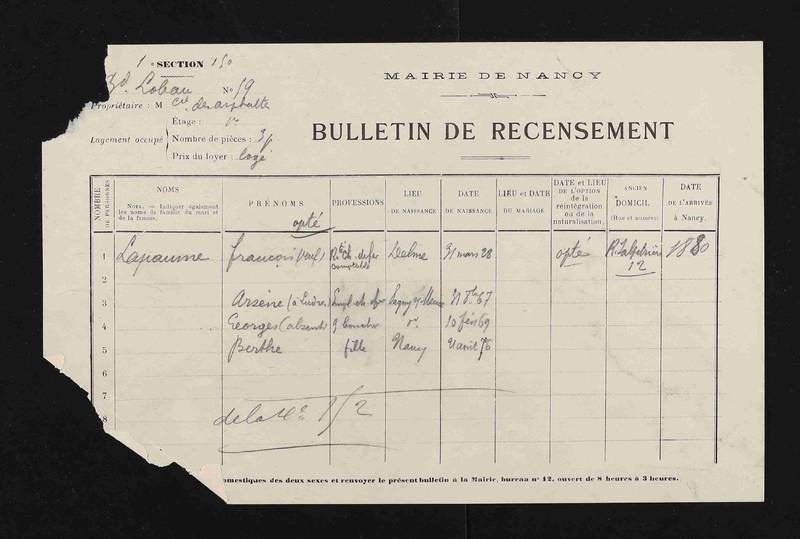 1 e SECTION 150
Bd. Lobau No 59
MAIRIE DE NANCY
Propriétaire : M Cie des asphalte
Étage : r
BULLETIN DE RECENSEMENT
Logement occupé Nombre de pièces : 3 p
Prix du loyer : logé
NOMBRE DE PERSONNES
NOMS
NOTA. — Indiquer également les noms de famille du mari et de la femme.
PRÉNOMS
PROFESSIONS
LIEU DE NAISSANCE
DATE DE NAISSANCE
LIEU et DATE DU MARIAGE
DATE et LIEU DE L'OPTION de la réintégration ou de la naturalisation.
ANCIEN DOMICIL (Rue et numéro)
DATE DE L'ARRIVÉE à Nancy.
opté
1 Lapaume François (veuf) Rté ch. de fer comptable Delme 31 mars 28 opté 12 1880
2
3 Arsène (à Ludres) Empl ch. fer Pagny s/ Meuse 21 67
4 Georges (absent) g boucher d° 10 fév 69
5 Berthe fille Nancy avril 76
6
7
8 de la 1/2
omestiques des deux sexes et renvoyer le présent bulletin à la Mairie, bureau n° 12, ouvert de 8 heures à 3 heures.